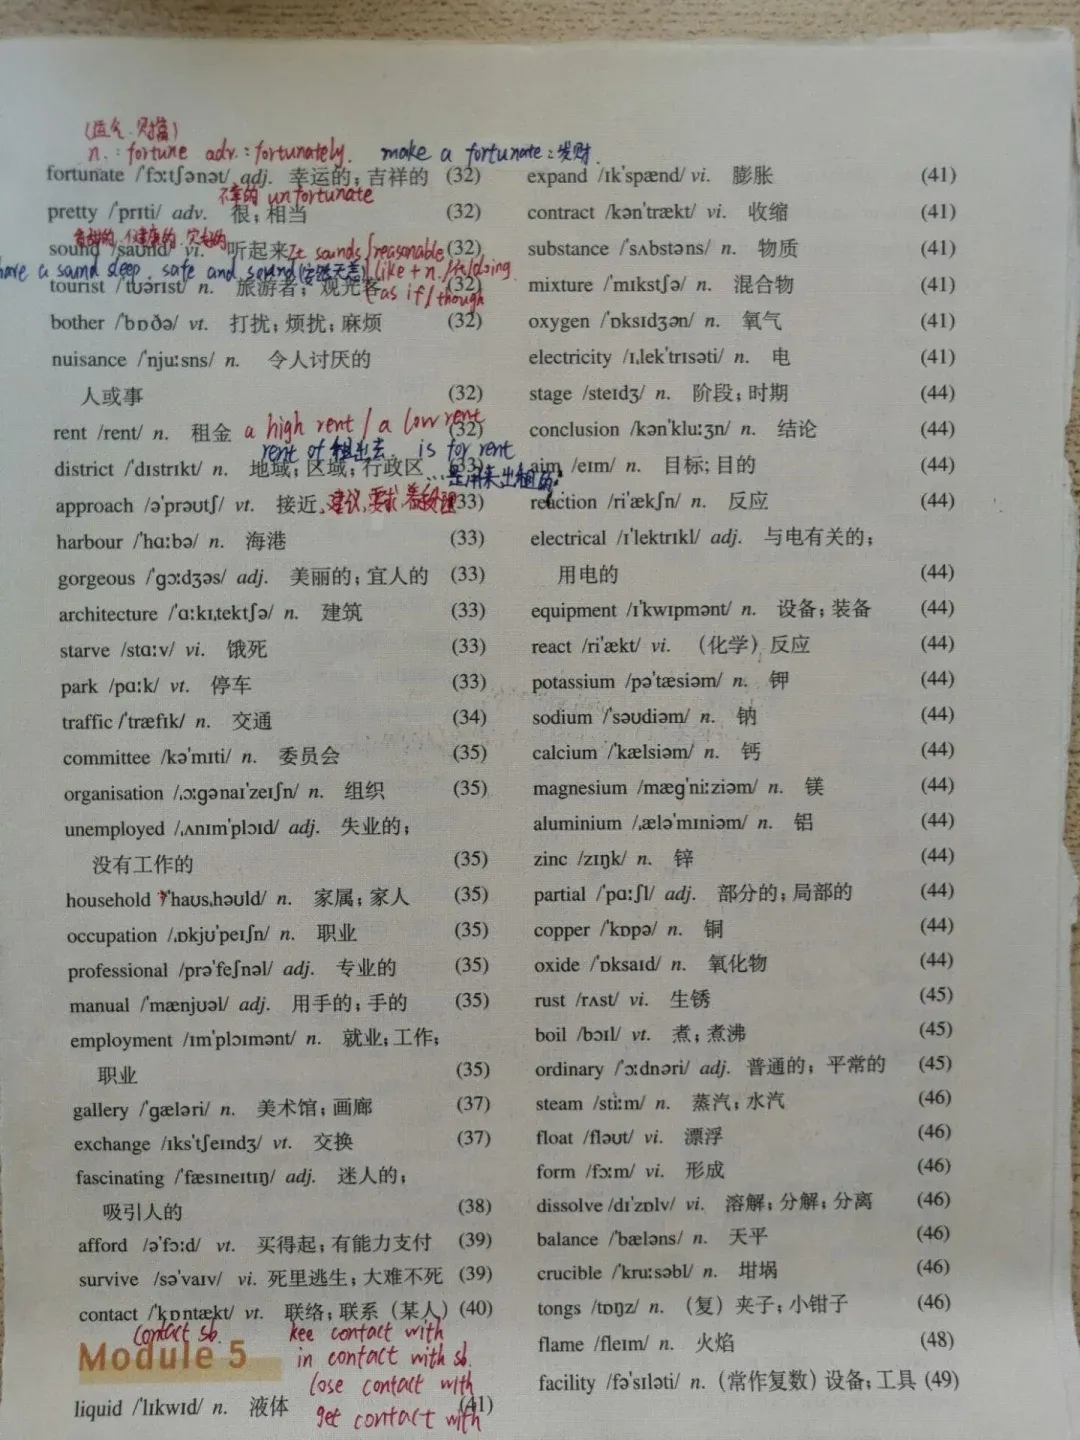 (运气.财富)
n.: fortune adv.: fortunately. make a fortunate: 发财.
fortunate /ˈfɔːtʃənət/ adj. 幸运的; 吉祥的 (32)
不幸的 unfortunate
pretty /ˈprɪti/ adv. 很; 相当 (32)
sound /saʊnd/ vi. 听起来 (32)
It sounds reasonable
have a sound sleep. safe and sound (安然无恙) like + n./doing.
tourist /ˈtʊərɪst/ n. 旅游者; 观光客 (32)
as if / though
bother /ˈbɒðə/ vt. 打扰; 烦扰; 麻烦 (32)
nuisance /ˈnjuːsns/ n. 令人讨厌的
人或事 (32)
rent /rent/ n. 租金 (32)
a high rent / a low rent
rent of 租出去 is for rent
district /ˈdɪstrɪkt/ n. 地域; 区域; 行政区 (33)
…是用来出租的
approach /əˈprəʊtʃ/ vt. 接近 (33)
建议, 要求 着手处理
harbour /ˈhɑːbə/ n. 海港 (33)
gorgeous /ˈgɔːdʒəs/ adj. 美丽的; 宜人的 (33)
architecture /ˈɑːkɪˌtektʃə/ n. 建筑 (33)
starve /stɑːv/ vi. 饿死 (33)
park /pɑːk/ vt. 停车 (33)
traffic /ˈtræfɪk/ n. 交通 (34)
committee /kəˈmɪti/ n. 委员会 (35)
organisation /ˌɔːgənaɪˈzeɪʃn/ n. 组织 (35)
unemployed /ˌʌnɪmˈplɔɪd/ adj. 失业的;
没有工作的 (35)
household /ˈhaʊsˌhəʊld/ n. 家属; 家人 (35)
occupation /ˌɒkjʊˈpeɪʃn/ n. 职业 (35)
professional /prəˈfeʃnəl/ adj. 专业的 (35)
manual /ˈmænjʊəl/ adj. 用手的; 手的 (35)
employment /ɪmˈplɔɪmənt/ n. 就业; 工作;
职业 (35)
gallery /ˈgæləri/ n. 美术馆; 画廊 (37)
exchange /ɪksˈtʃeɪndʒ/ vt. 交换 (37)
fascinating /ˈfæsɪneɪtɪŋ/ adj. 迷人的;
吸引人的 (38)
afford /əˈfɔːd/ vt. 买得起; 有能力支付 (39)
survive /səˈvaɪv/ vi. 死里逃生; 大难不死 (39)
contact /ˈkɒntækt/ vt. 联络; 联系 (某人) (40)
contact sb. kee contact with
Module 5
in contact with sb.
lose contact with
liquid /ˈlɪkwɪd/ n. 液体 (41)
get contact with
expand /ɪkˈspænd/ vi. 膨胀 (41)
contract /kənˈtrækt/ vi. 收缩 (41)
substance /ˈsʌbstəns/ n. 物质 (41)
mixture /ˈmɪkstʃə/ n. 混合物 (41)
oxygen /ˈɒksɪdʒən/ n. 氧气 (41)
electricity /ɪˌlekˈtrɪsəti/ n. 电 (41)
stage /steɪdʒ/ n. 阶段; 时期 (44)
conclusion /kənˈkluːʒn/ n. 结论 (44)
aim /eɪm/ n. 目标; 目的 (44)
reaction /riˈækʃn/ n. 反应 (44)
electrical /ɪˈlektrɪkl/ adj. 与电有关的;
用电的 (44)
equipment /ɪˈkwɪpmənt/ n. 设备; 装备 (44)
react /riˈækt/ vi. (化学) 反应 (44)
potassium /pəˈtæsiəm/ n. 钾 (44)
sodium /ˈsəʊdiəm/ n. 钠 (44)
calcium /ˈkælsiəm/ n. 钙 (44)
magnesium /mægˈniːziəm/ n. 镁 (44)
aluminium /ˌæləˈmɪniəm/ n. 铝 (44)
zinc /zɪŋk/ n. 锌 (44)
partial /ˈpɑːʃl/ adj. 部分的; 局部的 (44)
copper /ˈkɒpə/ n. 铜 (44)
oxide /ˈɒksaɪd/ n. 氧化物 (44)
rust /rʌst/ vi. 生锈 (45)
boil /bɔɪl/ vt. 煮; 煮沸 (45)
ordinary /ˈɔːdnəri/ adj. 普通的; 平常的 (45)
steam /stiːm/ n. 蒸汽; 水汽 (46)
float /fləʊt/ vi. 漂浮 (46)
form /fɔːm/ vi. 形成 (46)
dissolve /dɪˈzɒlv/ vi. 溶解; 分解; 分离 (46)
balance /ˈbæləns/ n. 天平 (46)
crucible /ˈkruːsəbl/ n. 坩埚 (46)
tongs /tɒŋz/ n. (复) 夹子; 小钳子 (46)
flame /fleɪm/ n. 火焰 (48)
facility /fəˈsɪləti/ n. (常作复数) 设备; 工具 (49)